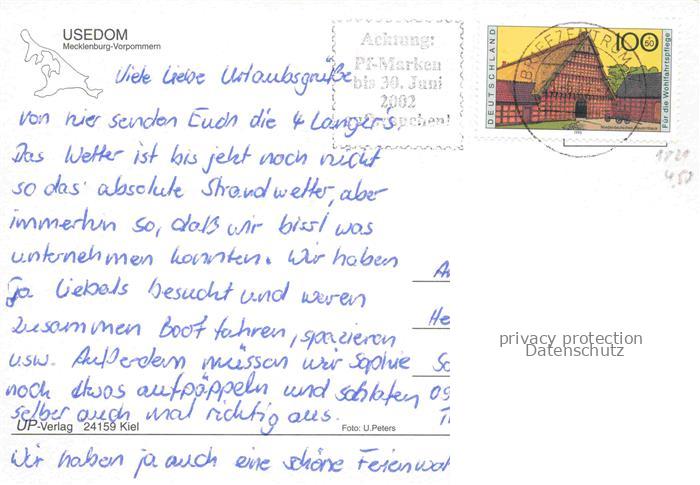 USEDOM
Mecklenburg-Vorpommern
Achtung:
Pf-Marken
bis 30. Juni
2002
DEUTSCHLAND
100
50
Für die Wohlfahrtspflege
BRIEFZENTRUM
Viele Liebe Urlaubsgrüße
von hier senden Euch die 4 Langers,
Das Wetter ist bis jetzt noch nicht
so das absolute Strandwetter, aber
immerhin so, daß wir bissl was
unternehmen konnten. Wir haben
ja Liebals besucht und waren
zusammen Boot fahren, spazieren
usw. Außerdem müssen wir Sophie
noch etwas aufpäppeln und schlafen
selber auch mal richtig aus.
UP-Verlag 24159 Kiel
Foto: U.Peters
Wir haben ja auch eine schöne Ferienwoh
He
09
privacy protection
Datenschutz
4,50